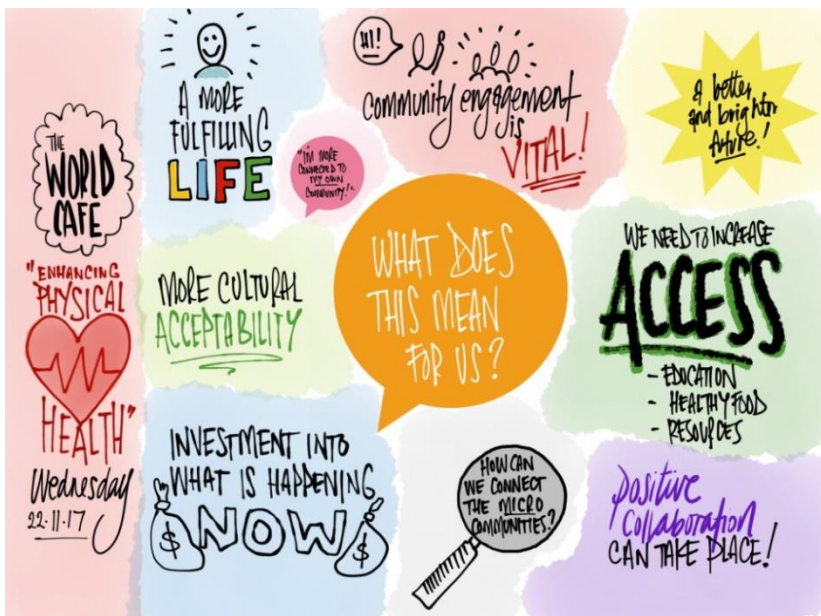 THE
WORLD
CAFE
"ENHANCING
PHYSICAL
HEALTH"
Wednesday
22·11·17
A MORE
FULFILLING
LIFE
"I'M MORE
CONNECTED TO
MY OWN
COMMUNITY!"
HI!
Community engagement
is
VITAL!
a better
and brighter
future!
MORE CULTURAL
ACCEPTABILITY
WHAT DOES
THIS MEAN
FOR US?
WE NEED TO INCREASE
ACCESS
- EDUCATION
- HEALTHY FOOD
- RESOURCES
INVESTMENT INTO
WHAT IS HAPPENING
$ NOW $
HOW CAN
WE CONNECT
THE MICRO
COMMUNITIES?
Positive
Collaboration
CAN TAKE PLACE!